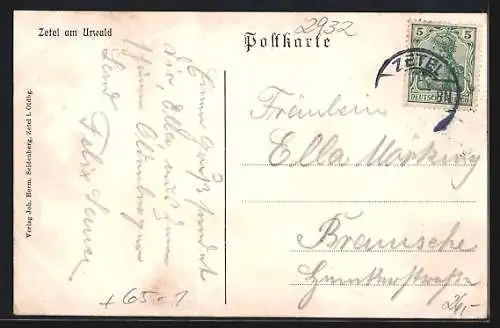 Zetel am Urwald
2932
Postkarte
5 5
DEUTSCHES REICH
ZETEL
Verlag Joh. Herm. Seidenberg, Zetel i. Oldbg.
Einen Gruß sendet
dir, Ella aus dem
schönen Oldenburger
Land
Felix
Fräulein
Ella
Bramsche
+ 65.-1
26,-